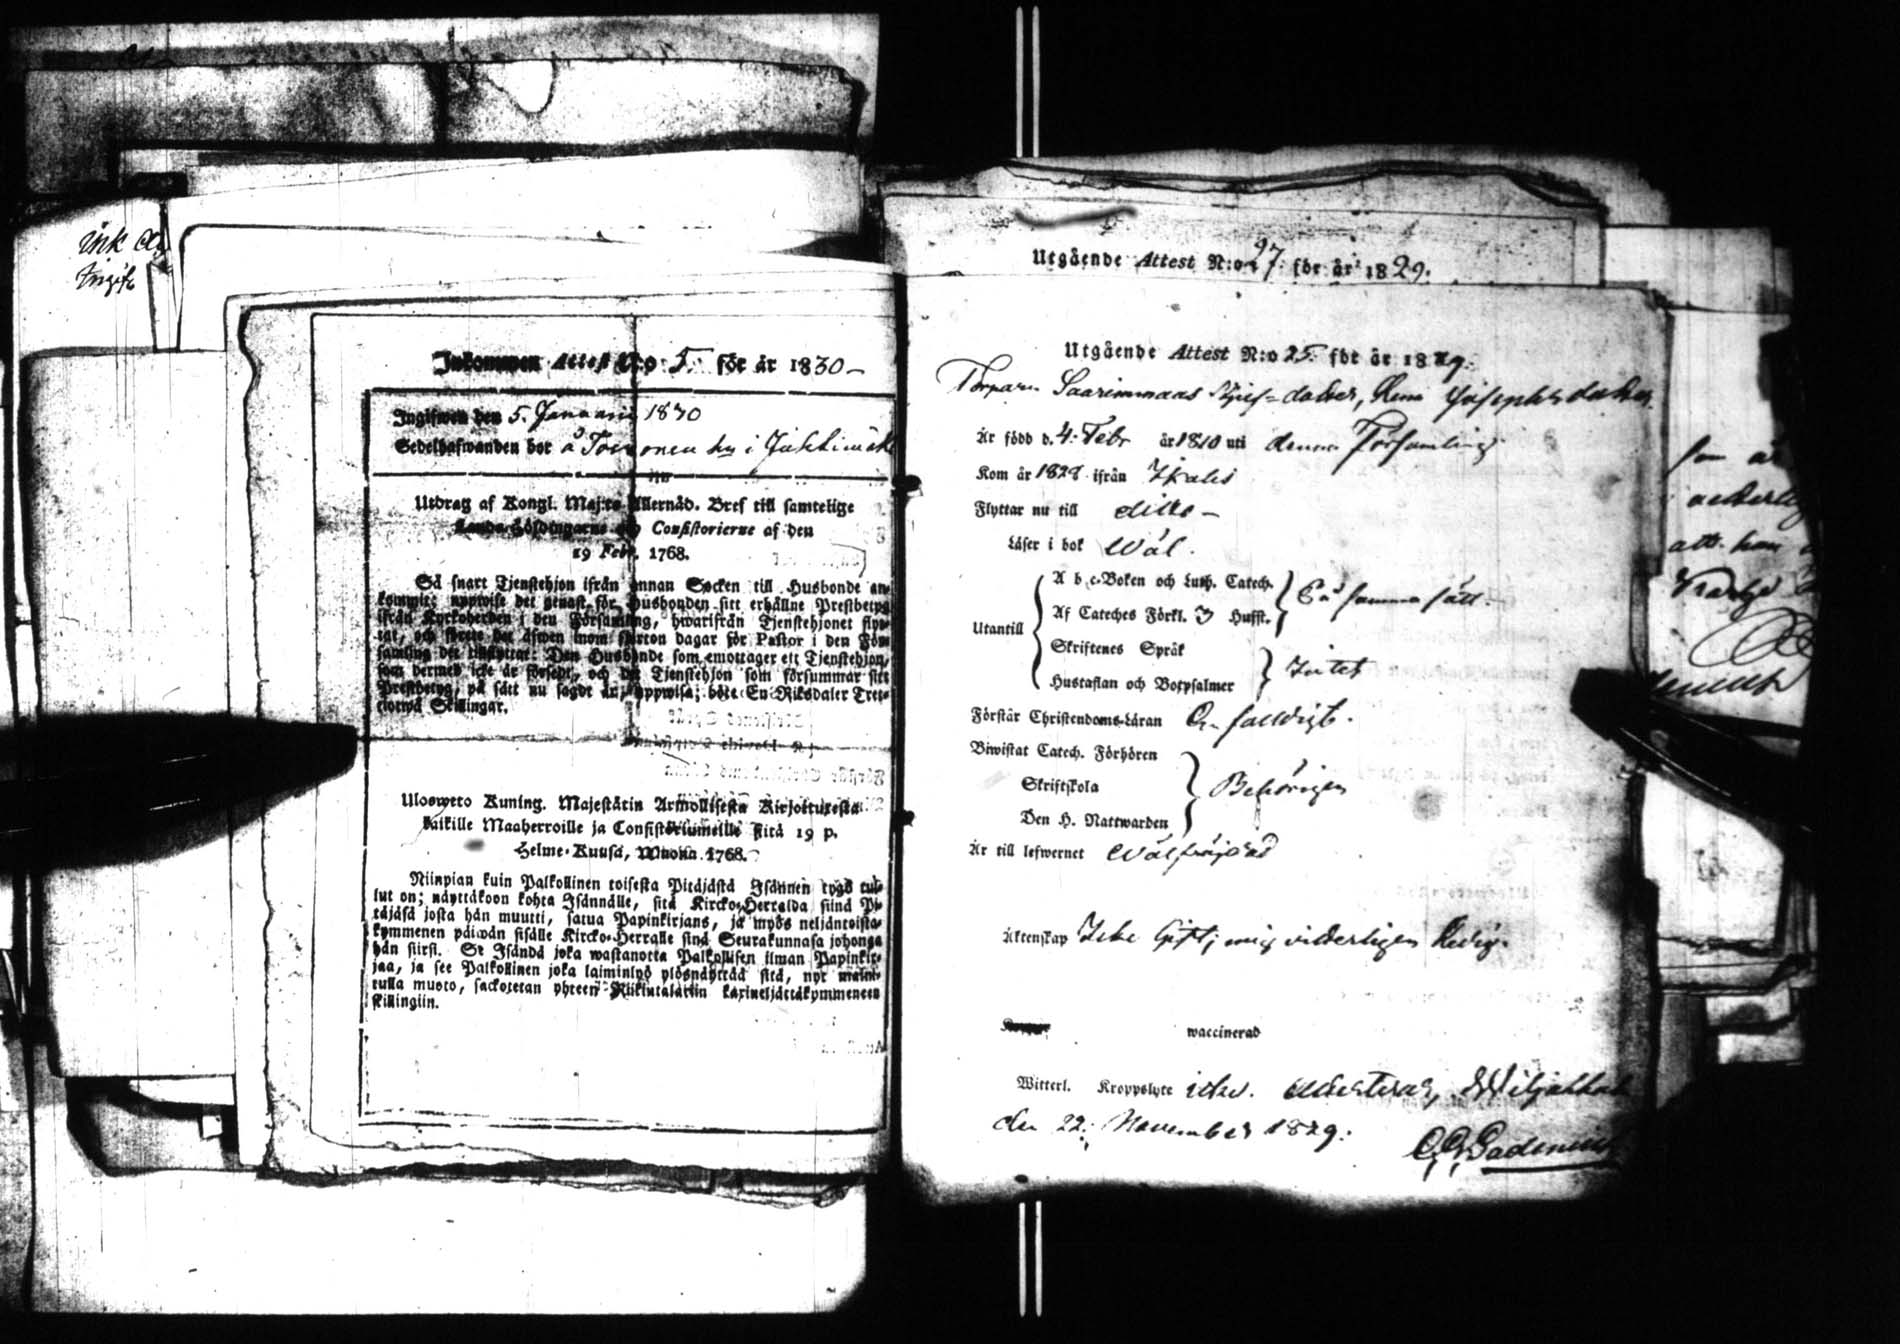 ink
Inkommen Attest N:o 5. för år 1830
Ingifwen den 5. Januarii 1830
Sedelhafwanden bor å
Utdrag af Kongl. Maj:ts Allernåd. Bref till samtelige
Lands-Höfdingarne och Consistorierne af den
19 Febr. 1768.
Så snart Tjenstehjon ifrån annan Socken till Husbonde an-
kommit; uppwise det genast för Husbonden sitt erhållne Prestbetyg
ifrån Kyrkoherden i den Församling, hwarifrån Tjenstehjonet flyt-
tat, och förete det äfwen inom fjorton dagar för Pastor i den För-
samling det tillflyttat: Den Husbonde som emottager ett Tjenstehjon,
som dermed icke är försedt, och det Tjenstehjon som försummar sitt
Prestbetyg, på sätt nu sagdt är, uppwisa; böte En Riksdaler Tret-
tiotwå Skillingar.
Ulosweto Kuning. Majestätin Armollisesta Kirjoituxesta
kaikille Maaherroille ja Consistoriumeille sitä 19 p.
Helme-Kuusa, Wuonna 1768.
Niinpian kuin Palkollinen toisesta Pitäjästä Isännen tygö tul-
lut on; näyttäkoon kohta Isännälle, sitä Kircko-Herralda siinä Pi-
täjäsä josta hän muutti, saatua Papinkirjans, ja myös neljäntoista-
kymmenen päiwän sisälle Kircko-Herralle siinä Seurakunnasa johonga
hän siirsi. Se Isändä joka wastanotta Palkollisen ilman Papinkir-
jaa, ja see Palkollinen joka laiminlyö ylösnäyttää sitä, nyt maini-
tulla muoto, sackotetan yhteen Riikintalariin kaxineljättäkymmeneen
skillingiin.
Utgående Attest N:o 27. för år 1829.
Utgående Attest N:o 25. för år 1829.
Torparen Saarimmaas dotter, Lena Josephsdotter
Är född d. 4. Febr år 1810 uti denna Församling
Kom år 1828 ifrån Ikalis
Flyttar nu till ditto –
Läser i bok Wäl.
A b c-Boken och Luth. Catech.
Af Cateches Förkl. 3 Hufft. På samma sätt.
Utantill
Skriftenes Språk
Hustaflan och Botpsalmer Intet
Förstår Christendoms-Läran Enfaldigt.
Biwistat Catech. Förhören
Skriftskola Behörigen
Den H. Nattwarden
Är till lefwernet Wälfräjdad
Äktenskap Icke Gift; mig vitterligen ledig.
waccinerad
Witterl. Kroppslyte icke. attesterar,
den 22. November 1829.
som är